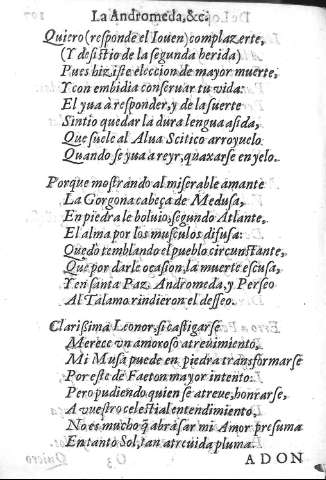 La Andromeda, &c.
Quiero (responde el Iouen) complazerte,
(Y desistio de la segunda herida)
Pues hiziste eleccion de mayor muerte,
Y con embidia conseruar tu vida:
El yua à responder, y de la suerte
Sintio quedar la dura lengua asida,
Que suele al Alua Scitico arroyuelo
Quando se yua a reyr, quaxarse en yelo.
Porque mostrando al miserable amante
La Gorgona cabeça de Medusa,
En piedra le boluio, segundo Atlante,
El alma por los musculos difusa:
Quedò temblando el pueblo circunstante,
Que por darle ocasion, la muerte escusa,
Y en santa Paz, Andromeda, y Perseo
Al Talamo rindieron el desseo.
Clarissima Leonor, si castigarse
Merece vn amoroso atreuimiento,
Mi Musa puede en piedra transformarse
Por este de Faeton mayor intento:
Pero pudiendo quien se atreue, honrarse,
A vuestro celestial entendimiento,
No es mucho q̃ abrasar mi Amor presuma
En tanto Sol, tan atreuida pluma.
ADON